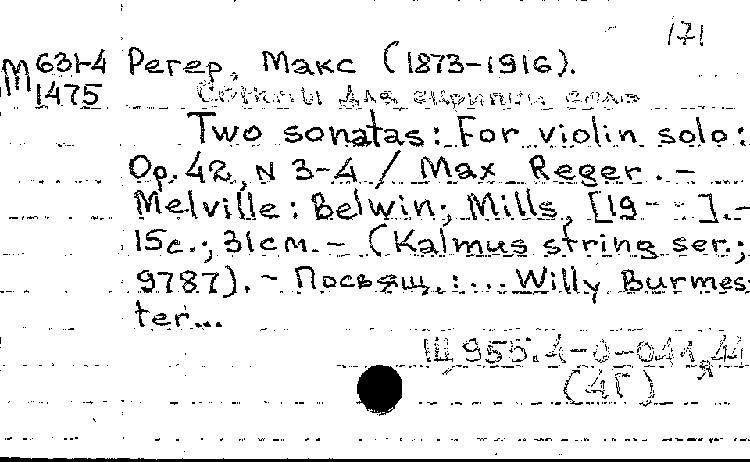 171
М 631-4 Регер, Макс (1873-1916).
1475 Сонаты для скрипки соло
Two sonatas: For violin solo:
Op. 42, N 3-4 / Max Reger. –
Melville: Belwin; Mills, [19--]. –
15с.; 31см. – (Kalmus string ser.;
9787). – Посвящ.:... Willy Burmes
ter...
Щ 955.4-0-044,44
(4Г)